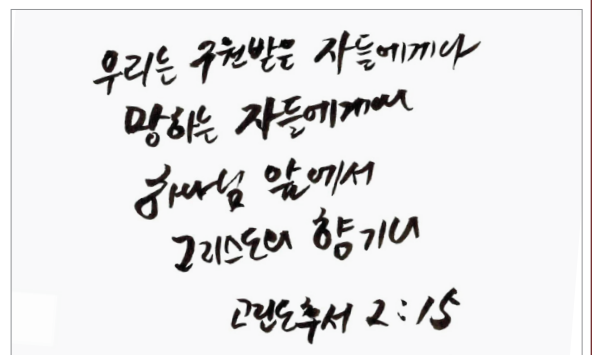 우리는 구원받은 자들에게나
망하는 자들에게나
하나님 앞에서
그리스도의 향기니
고린도후서 2:15